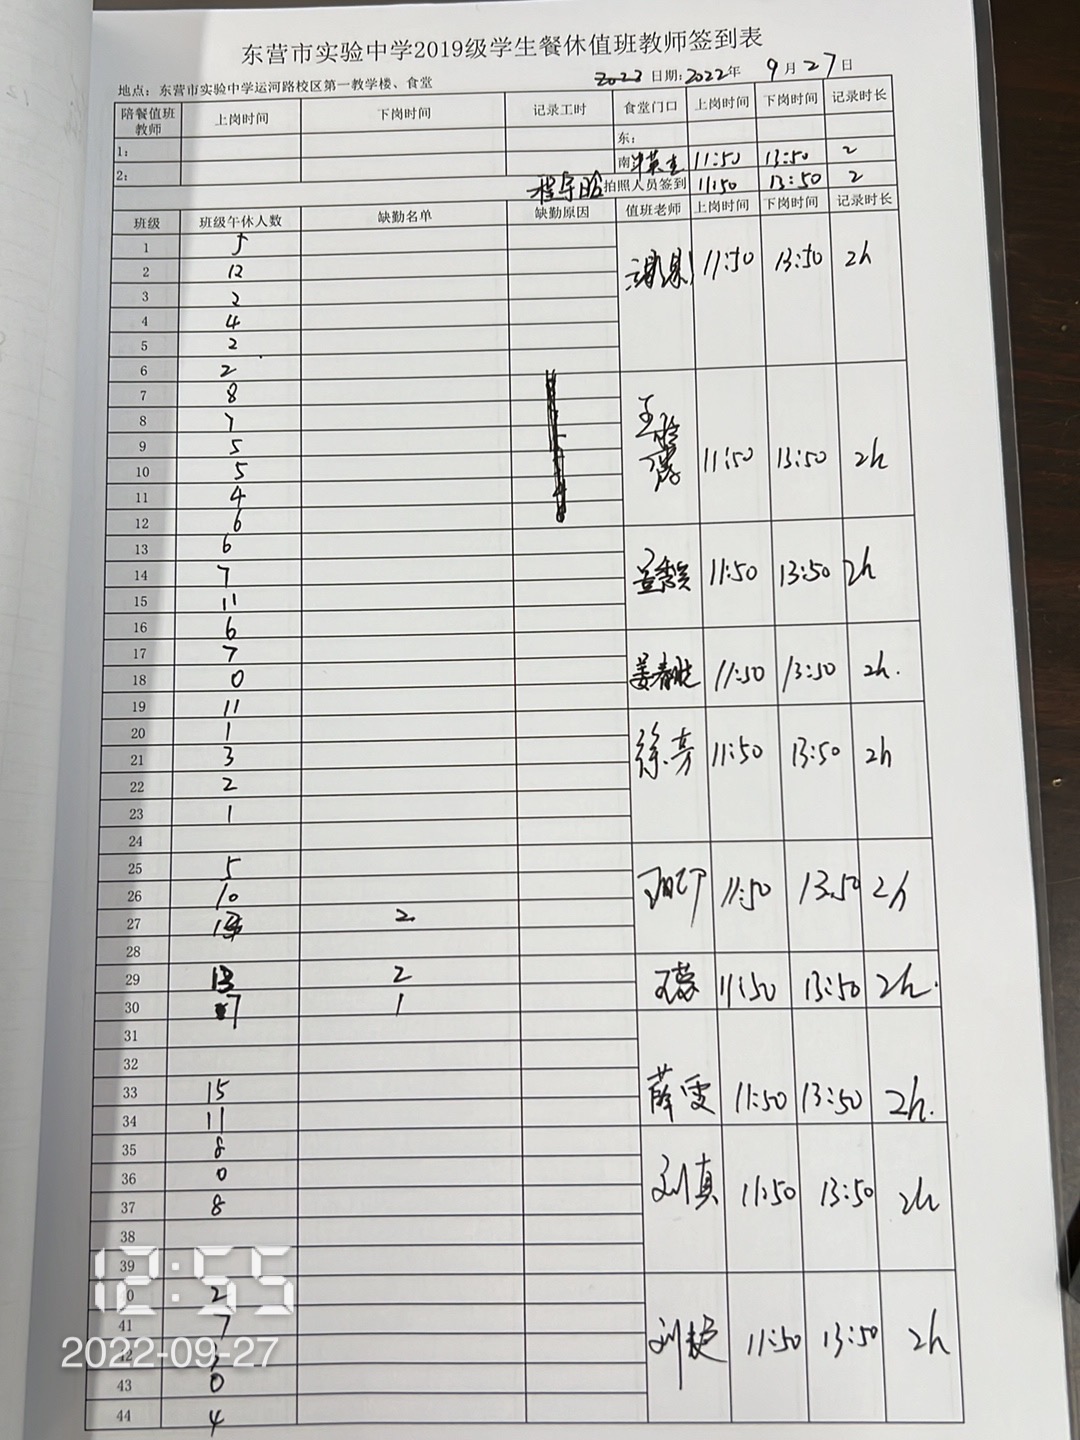 东营市实验中学2019级学生餐休值班教师签到表
地点：东营市实验中学运河路校区第一教学楼、食堂 日期：2022年 9月27日
陪餐值班教师 上岗时间 下岗时间 记录工时 食堂门口 上岗时间 下岗时间 记录时长
1： 东：
2： 南 11:50 13:50 2
拍照人员签到 11:50 13:50 2
班级 班级午休人数 缺勤名单 缺勤原因 值班老师 上岗时间 下岗时间 记录时长
1 5
2 12 11:50 13:50 2h
3 2
4 4
5 2
6 2
7 8
8 7
9 5
10 5 11:50 13:50 2h
11 4
12 6
13 6
14 7 11:50 13:50 2h
15 11
16 6
17 7
18 0 姜春胜 11:50 13:50 2h.
19 11
20 1
21 3 徐芳 11:50 13:50 2h
22 2
23 1
24
25 5
26 10 11:50 13.50 2h
27 2
28
29 13 2 王蕊 11:50 13:50 2h.
30 7 1
31
32
33 15 薛雯 11:50 13:50 2h.
34 11
35 8
36 0
37 8 刘真 11:50 13:50 2h
38
39
12:55
0 2
41 7
2022-09-27
刘 11:50 13:50 2h
43 0
44 4